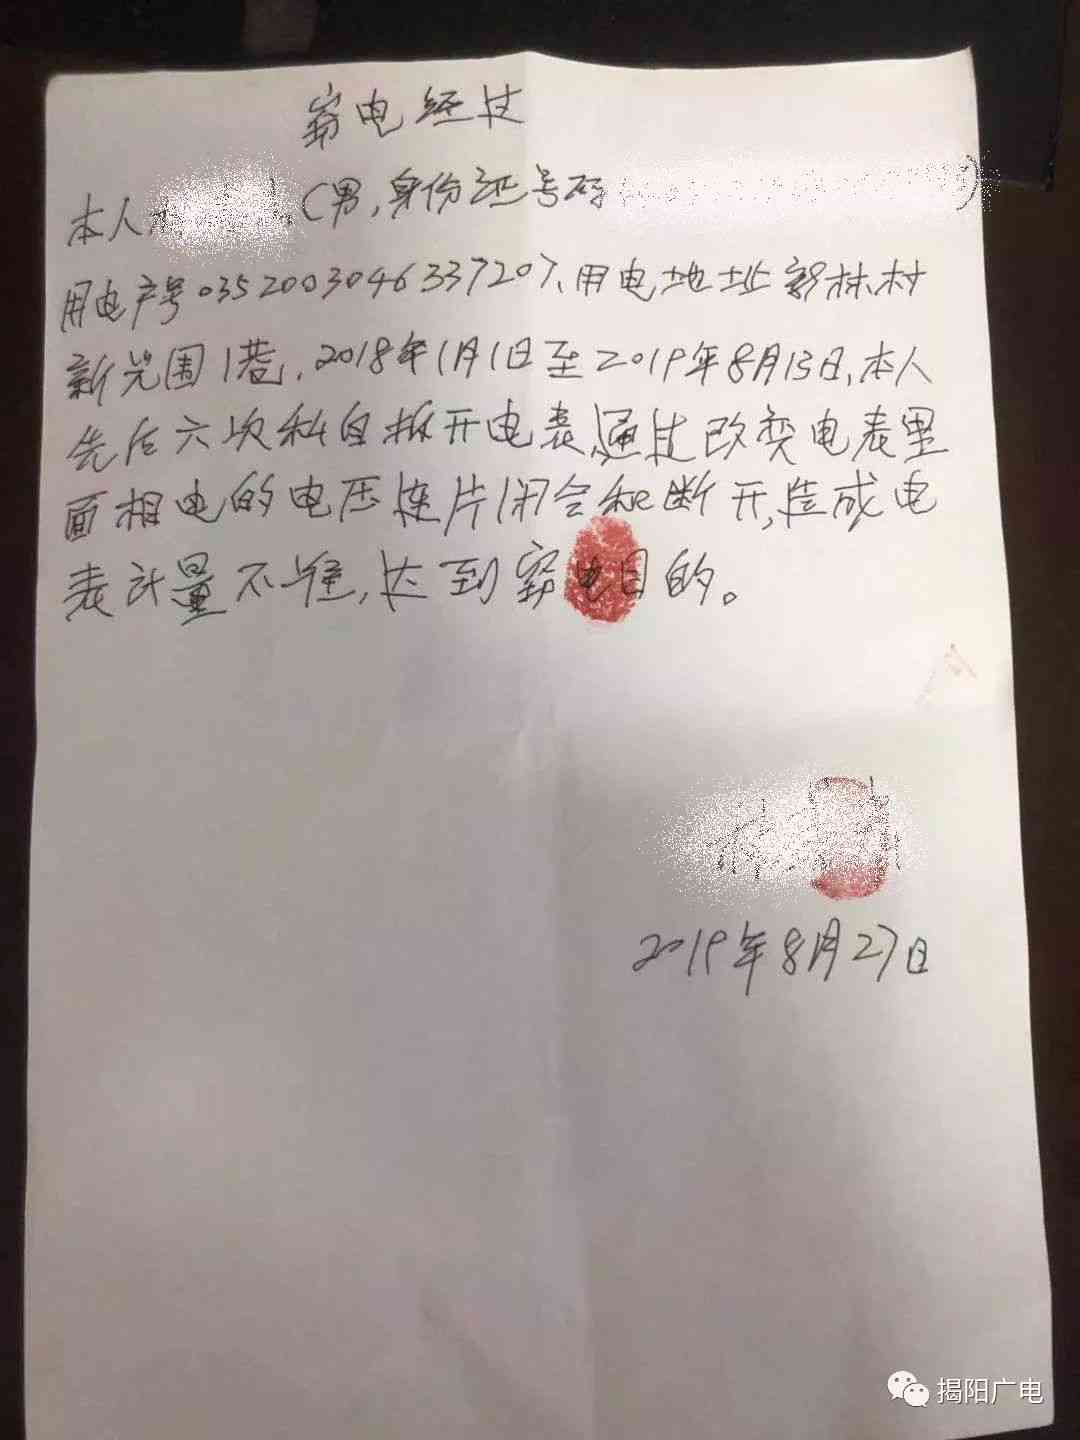 窃电经过
本人(男,身份证号码()
用电户号0352003046337207、用电地址新林村
新光围1巷,2018年1月1日至2019年8月13日,本人
先后六次私自拆开电表,通过改变电表里
面相电的电压连片闭合和断开,造成电
表计量不准,达到窃电目的。
2019年8月27日
揭阳广电